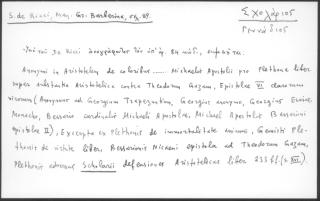 S. de Ricci, Man. Gr. Barberina, σελ. 89.
Σχολάριος
Γεννάδιος
de Ricci
Anonymi in Aristotelem de coloribus ...... Michaelis Apostolii pro Plethone liber
super substantia Aristotelica contra Theodorum Gazam, Epistolae XI clarorum
virorum (Anonymus ad Georgium Trapezuntium, Georgius anonymo, Georgius
Monacho, Bessario cardinalis Michaeli Apostolio, Michael Apostolis Bessarioni
epistolae II), Excerpta ex Plethonis de immortalitate animae, Gemisti Ple-
thonis de virtute liber, Bessarionis Nicaeni epistola ad Theodorum Gazam,
Plethonis adversus Scholarii defensiones Aristotelicas liber 233 ff. (s. XVI).